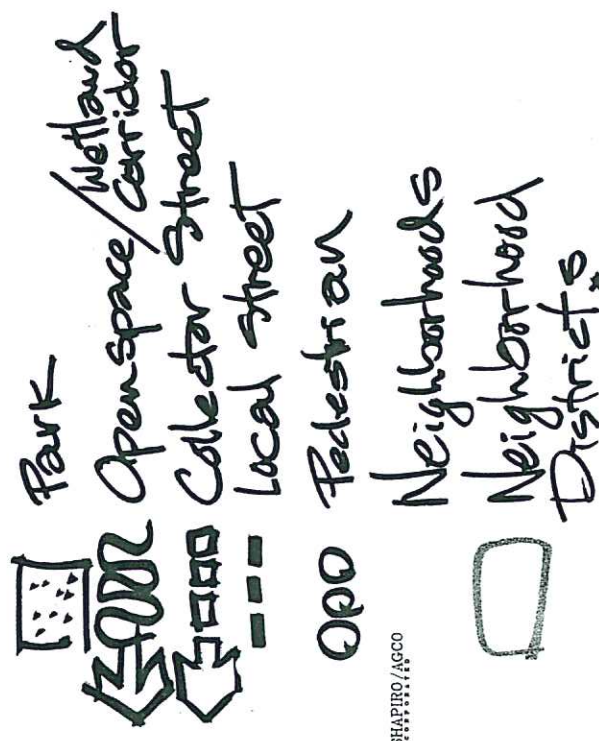 Park
Openspace / Wetland
Corridor
Collector Street
Local Street
Pedestrian
Neighborhoods
Neighborhood
Districts
SHAPIRO/AGCO
INCORPORATED